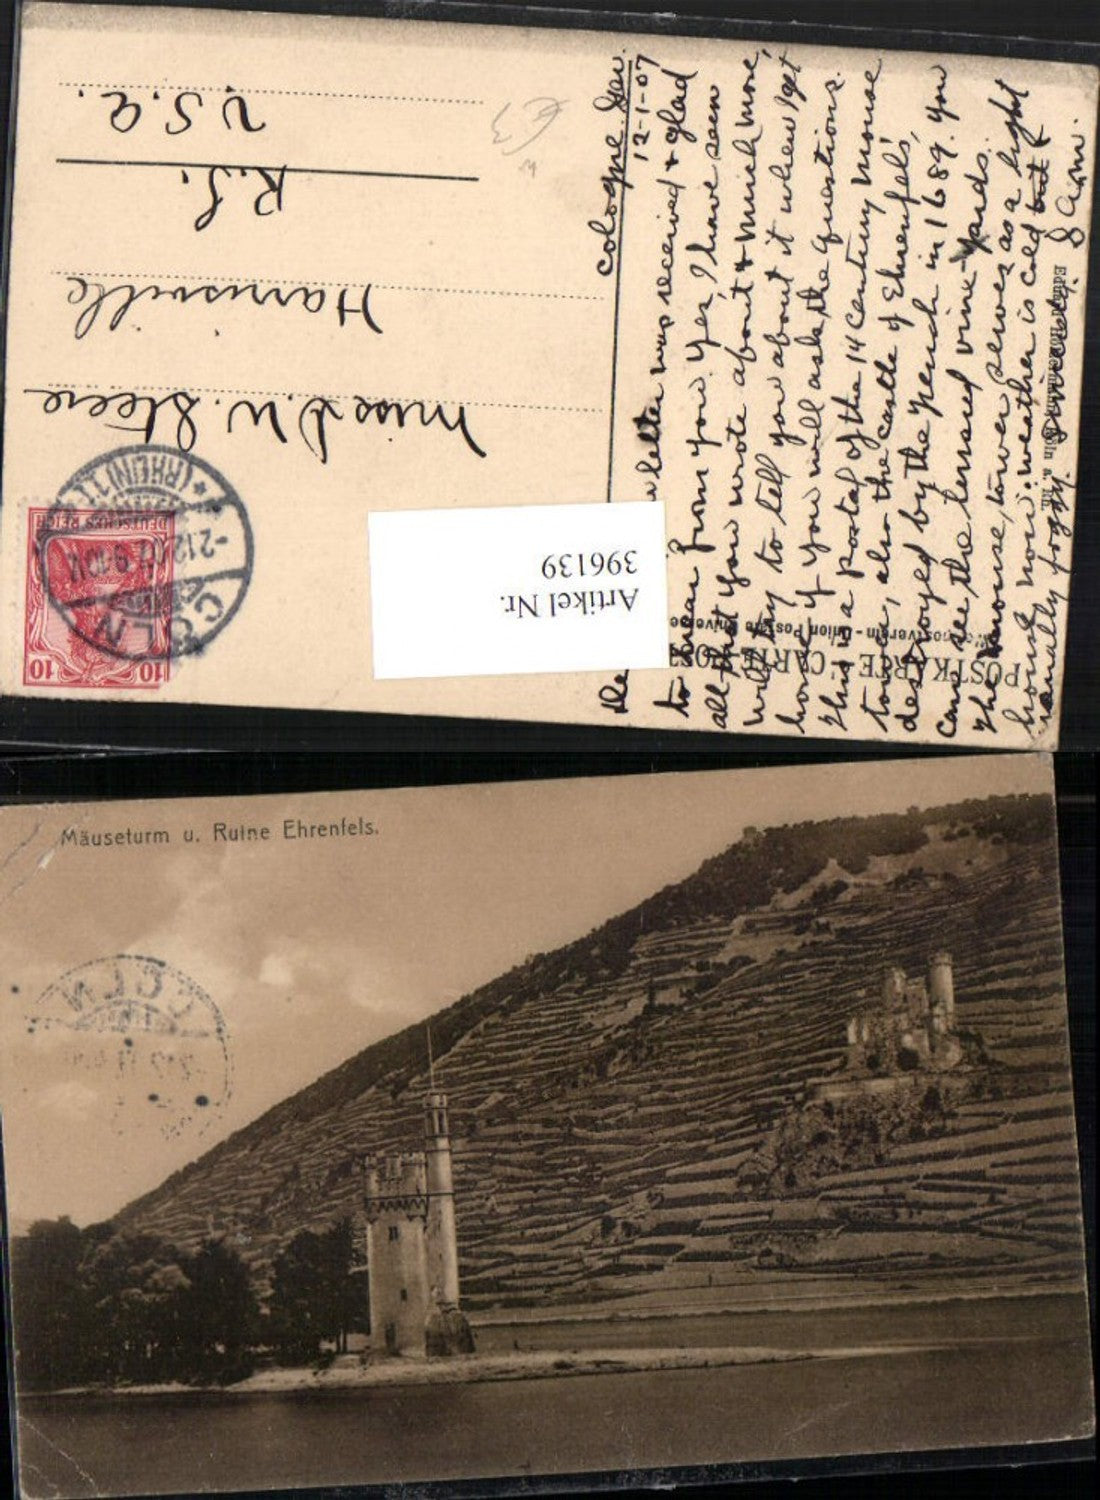 POSTKARTE - CARTE
Weltpostverein - Union Postale Universelle
Cologne Ger.
12-1-07
letter was received & glad
to hear from you. Yes, I have seen
all that you wrote about & much more,
will try to tell you about it when I get
home if you will ask the questions.
This is a postal of the 14 century mouse
tower, also the castle of Ehrenfels,
destroyed by the French in 1689. You
can see the terraced vine-yards.
The mouse tower serves as a light
house now. weather is cold but
usually foggy.
8 a.m.
Miss D. W. Steere
Harrisville
R.I.
U.S.A.
DEUTSCHES REICH
10 10
CÖLN
-2.12.07. 9-10V.
* (RHEIN) 1
Artikel Nr.
396139
€3
Mäuseturm u. Ruine Ehrenfels.
CÖLN